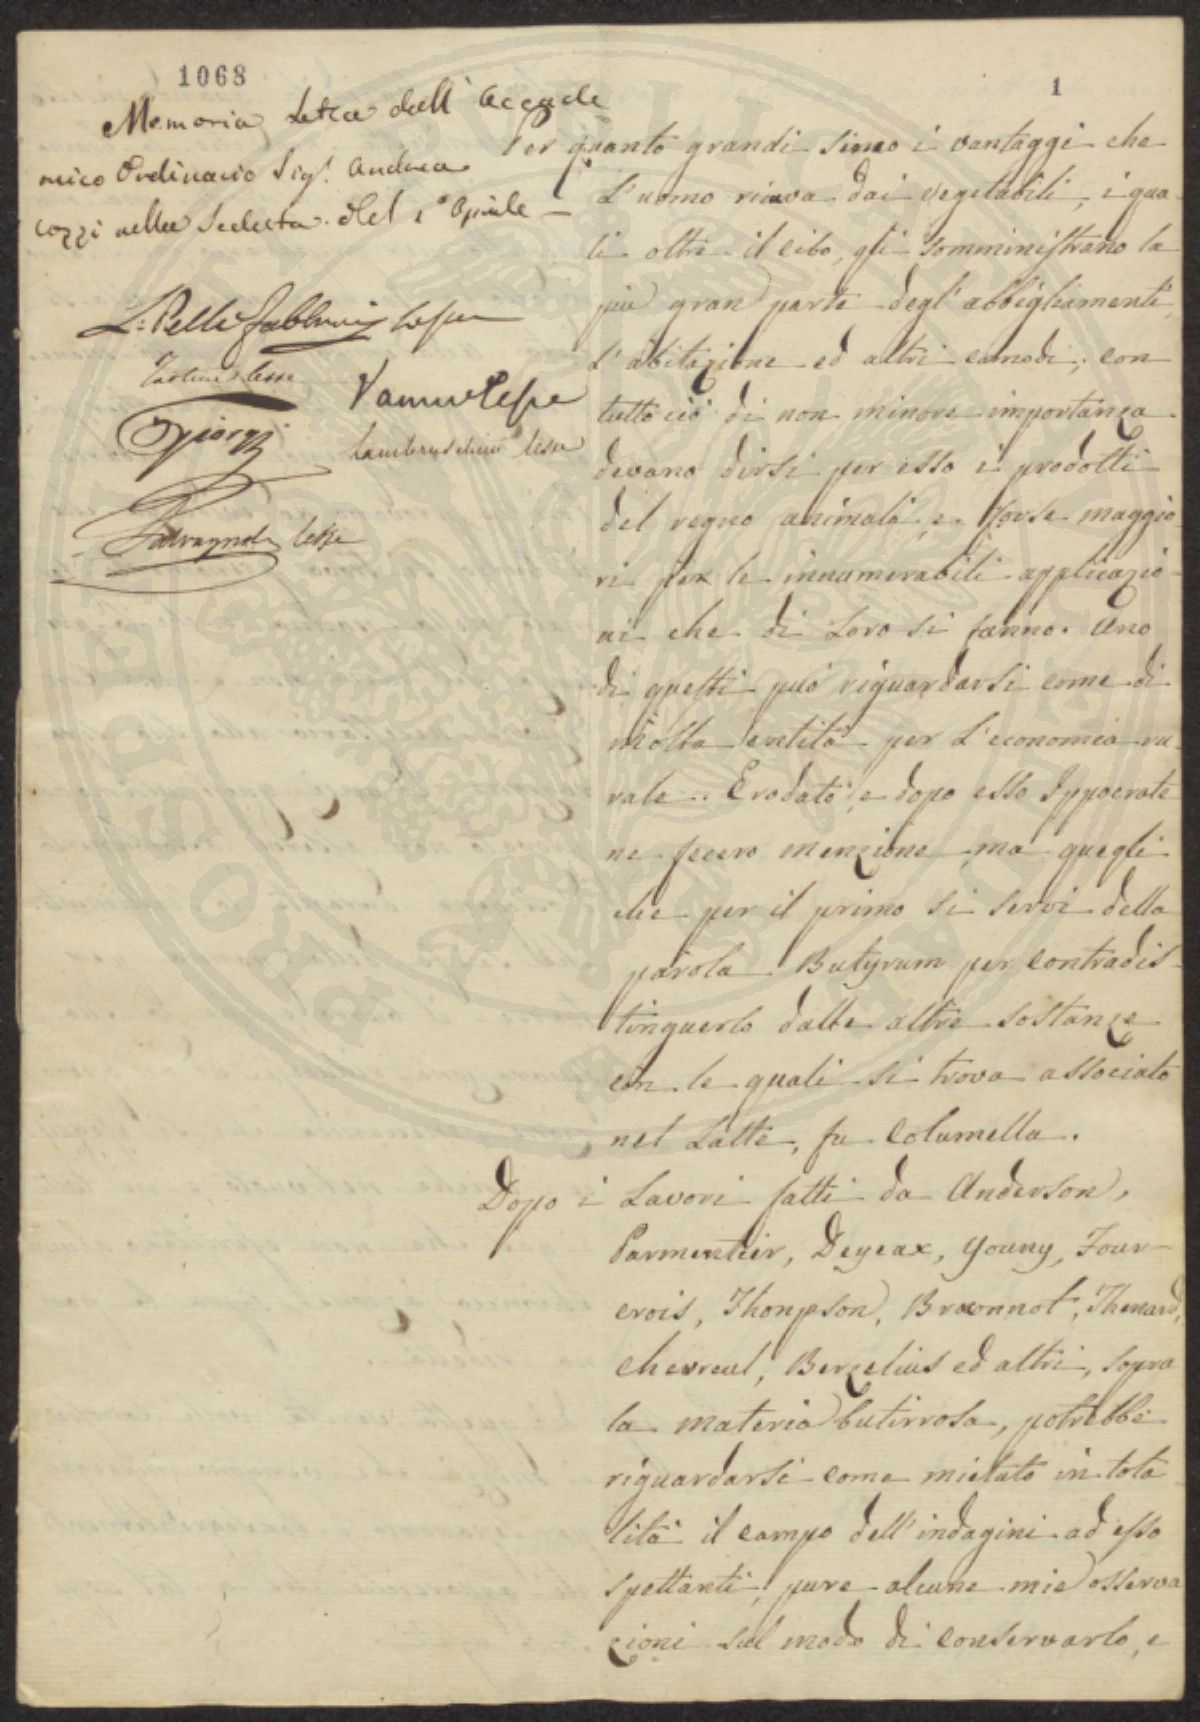 1068
1
Memoria Letta dall' Accade
mico Ordinario Sigr. Andrea
Cozzi nella Seduta del 1° Aprile —
L: Pelli Fabbroni lesse
Tartini lesse
Vanni lesse
Giorgi
Lambruschini lesse
Salvagnoli lesse
Per quanto grandi sieno i vantaggi che
l'uomo ricava dai vegetabili, i qua-
li oltre il cibo, gli somministrano la
piu gran parte degl'abbigliamenti,
l'abitazione ed altri comodi; con
tutto ciò di non minore importanza
devano dirsi per esso i prodotti
del regno animale, e forse maggio-
ri per le innumerabili applicazio-
ni che di Loro si fanno. Uno
di questi può riguardarsi come di
molta entità per l'economia ru-
rale.. Erodato, e dopo esso Ippocrate
ne fecero menzione, ma quegli
che per il primo si servì della
parola Butyrum per contradis-
tinguerlo dalle altre sostanze
con le quali si trova associato
nel Latte, fu Columella.
Dopo i Lavori fatti da Anderson,
Parmentier, Deyeax, Young, Four-
crois, Thompson, Braconnot, Thenard,
Chevreul, Berzelius ed altri, sopra
la materia butirrosa, potrebbe
riguardarsi come mietuto in tota
lità il campo dell'indagini ad esso
spettanti, pure alcune mie osserva
zioni sul modo di conservarlo, e